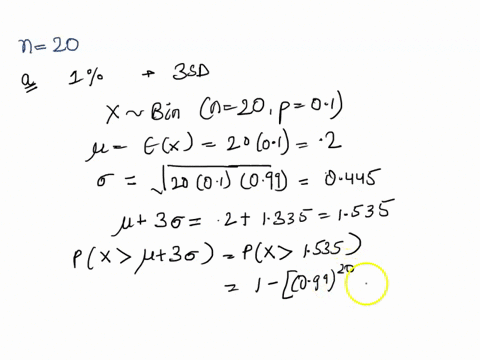 n=20
a 1% → 3SD
X ~ Bin (n=20, p=0.1)
μ = E(X) = 20(0.1) = .2
σ = √20(0.1)(0.99) = 0.445
μ+3σ = .2+1.335 = 1.535
P(X > μ+3σ) = P(X > 1.535)
= 1-[(0.99)^20 .